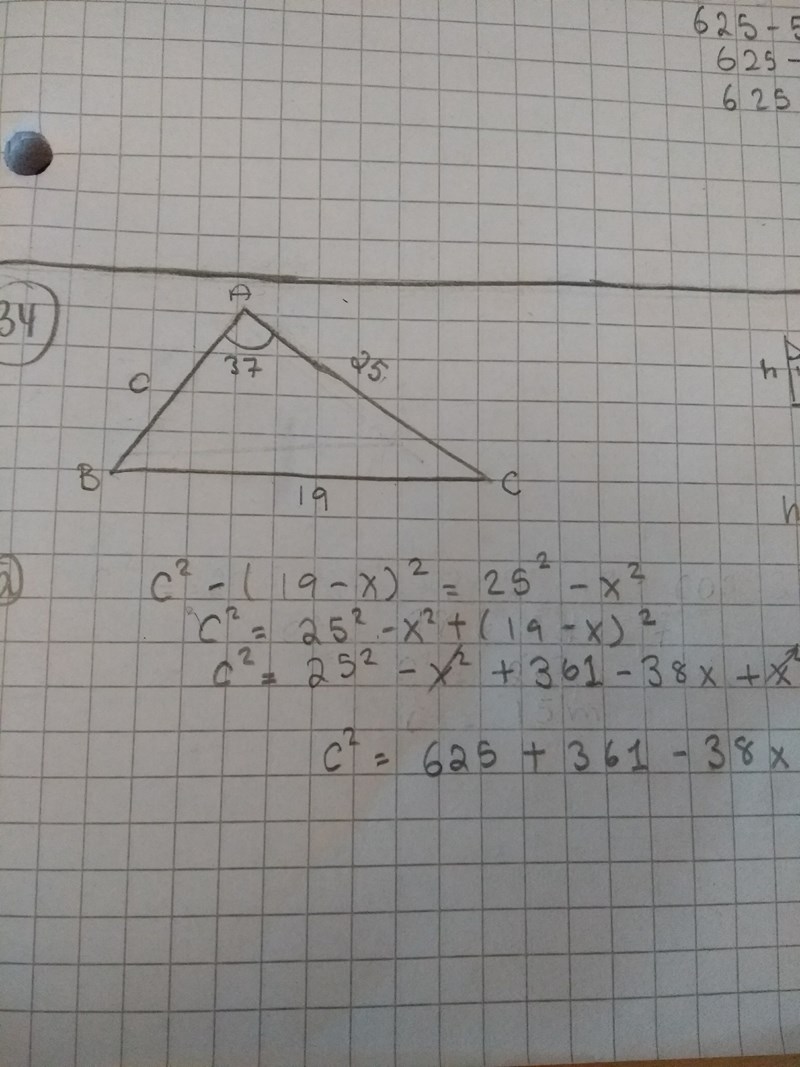 625 - 5
625 -
625
34
A
37
25
C
h
B
19
C
h
a
c² - (19 - x)² = 25² - x²
c² = 25² - x² + (19 - x)²
c² = 25² - x² + 361 - 38x + x²
c² = 625 + 361 - 38x